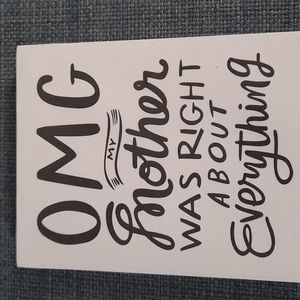 OMG
MY
Mother
WAS RIGHT
ABOUT
Everything